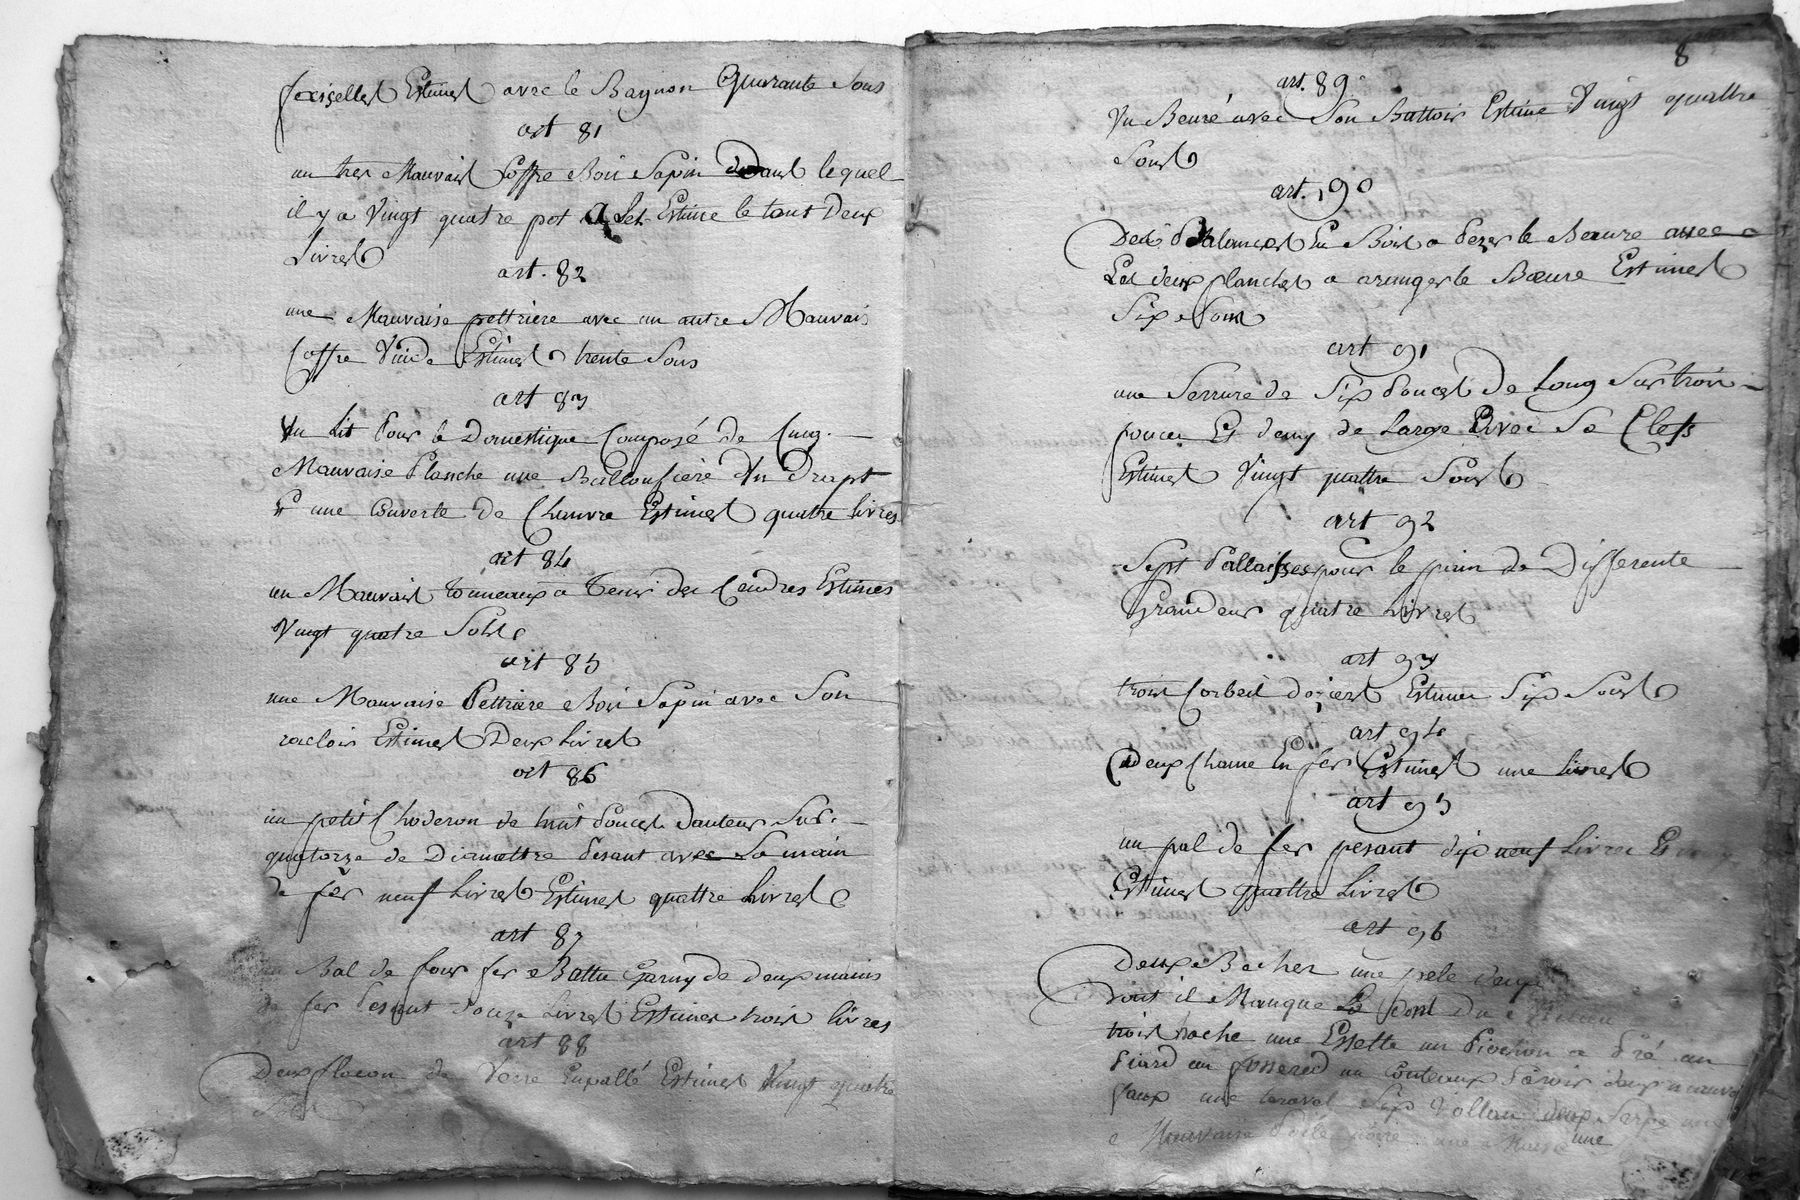 feisselles Estimes avec le Bagnon Quarante Sous
art 81
un tres Mauvais Coffre Bois Sapin dedans lequel
il y a Vingt quatre pot a Let Estime le tout Deux
Livres
art. 82
une Mauvaise pettriere avec un autre Mauvais
Coffre Vuide Estimes trente Sous
art 83
Un Lit Pour le Domestique Composé de Cinq
Mauvaise Planche une Balloufiere Un Drapt
Et une Couverte de Chanvre Estimes quatre livres
art 84
un Mauvais tonneaux a Tenir des Cendres Estimes
Vingt quatre Sols
art 85
une Mauvaise Pettriere Bois Sapin avec Son
racloir Estimes Deux Livres
art 86
un petit Choderon de huit Pouces Dauteur Sur
quatorze de Diamettre Pesant avec Sa main
de fer neuf Livres Estimes quattre Livres
art 87
un Bal de four fer Battu Garny de deux mains
de fer Pesant Douze Livres Estimes trois livres
art 88
Deux flacon de Verre Enpallé Estimes Vingt quatre
Sols
8
art. 89
Un Beuré avec Son Battoir Estime Vingt quattre
Sous
art. 90
Des Balances En Bois a Pezer le Beaure avec
Les deux planches a arenger le Bœure Estimes
Six Sous
art 91
une Serrure de Six Pouces De Long Sur trois
pouces Et demy de Large Avec Sa Cleff
Estimes Vingt quattre Sous
art 92
Sept Pallaisses pour le pain de Differente
Grandeur quatre Livres
art 93
trois Corbeil dosiers Estimes Six Sous
art 94
Deux Chaine En fer Estimes une Livres
art 95
un pal de fer pesant dix neuf Livres Et
Estimes quattre Livres
art 96
Deux Becher une pele
Dont il Manque Le
trois hache une Essette un Piochon a Pré un
Piard un fossered un Couteaux deux mauvs
faux une taravel Six Vollan deux Serpe une
Mauvaise Poile une
une